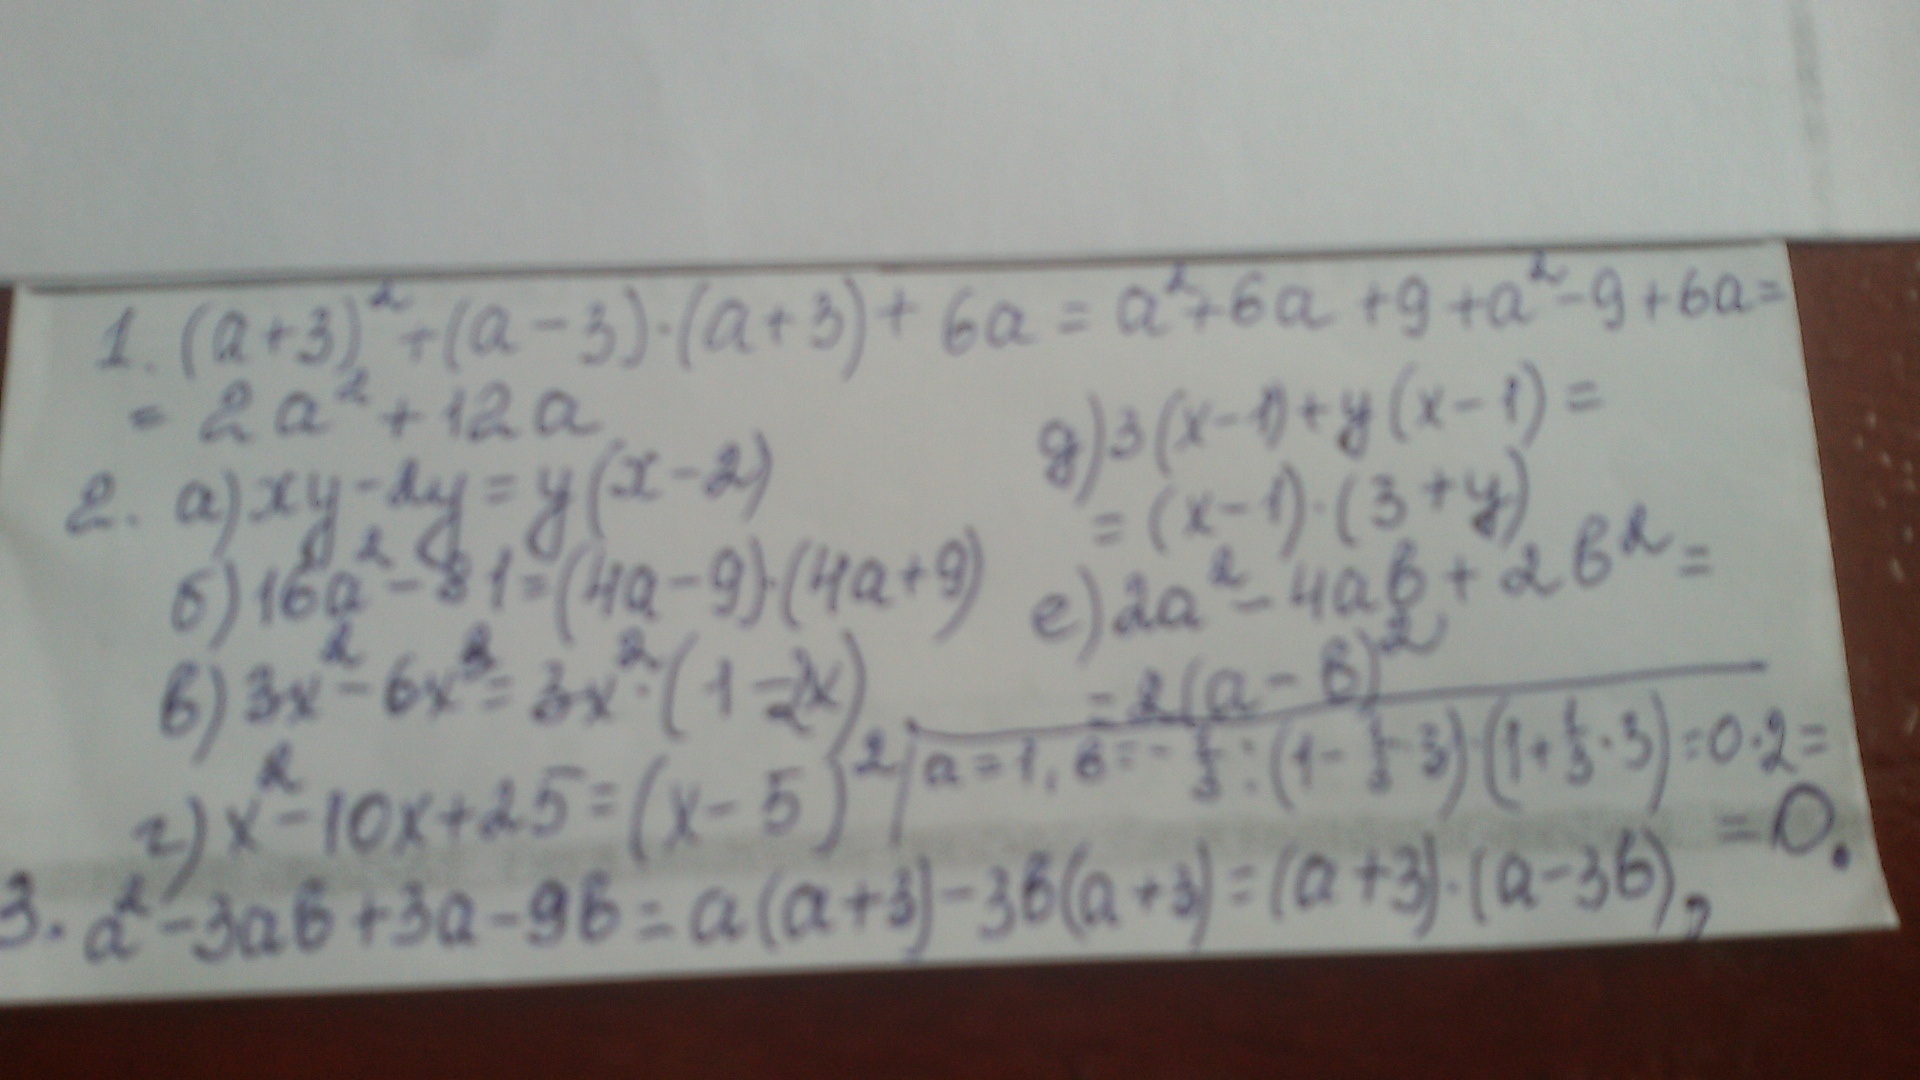 1. (a+3)²+(a-3)·(a+3)+6a=a²+6a+9+a²-9+6a=
= 2a²+12a
2. а) xy-2y=y(x-2)
б) 16a²-81=(4a-9)·(4a+9)
в) 3x²-6x³=3x²·(1-2x)
г) x²-10x+25=(x-5)²
д) 3(x-1)+y(x-1)=
=(x-1)·(3+y)
е) 2a²-4ab+2b²=
=2(a-b)²
a=1, b=-1/3: (1-1/3·3)·(1+1/3·3)=0·2=
=0.
3. a²-3ab+3a-9b=a(a+3)-3b(a+3)=(a+3)·(a-3b),